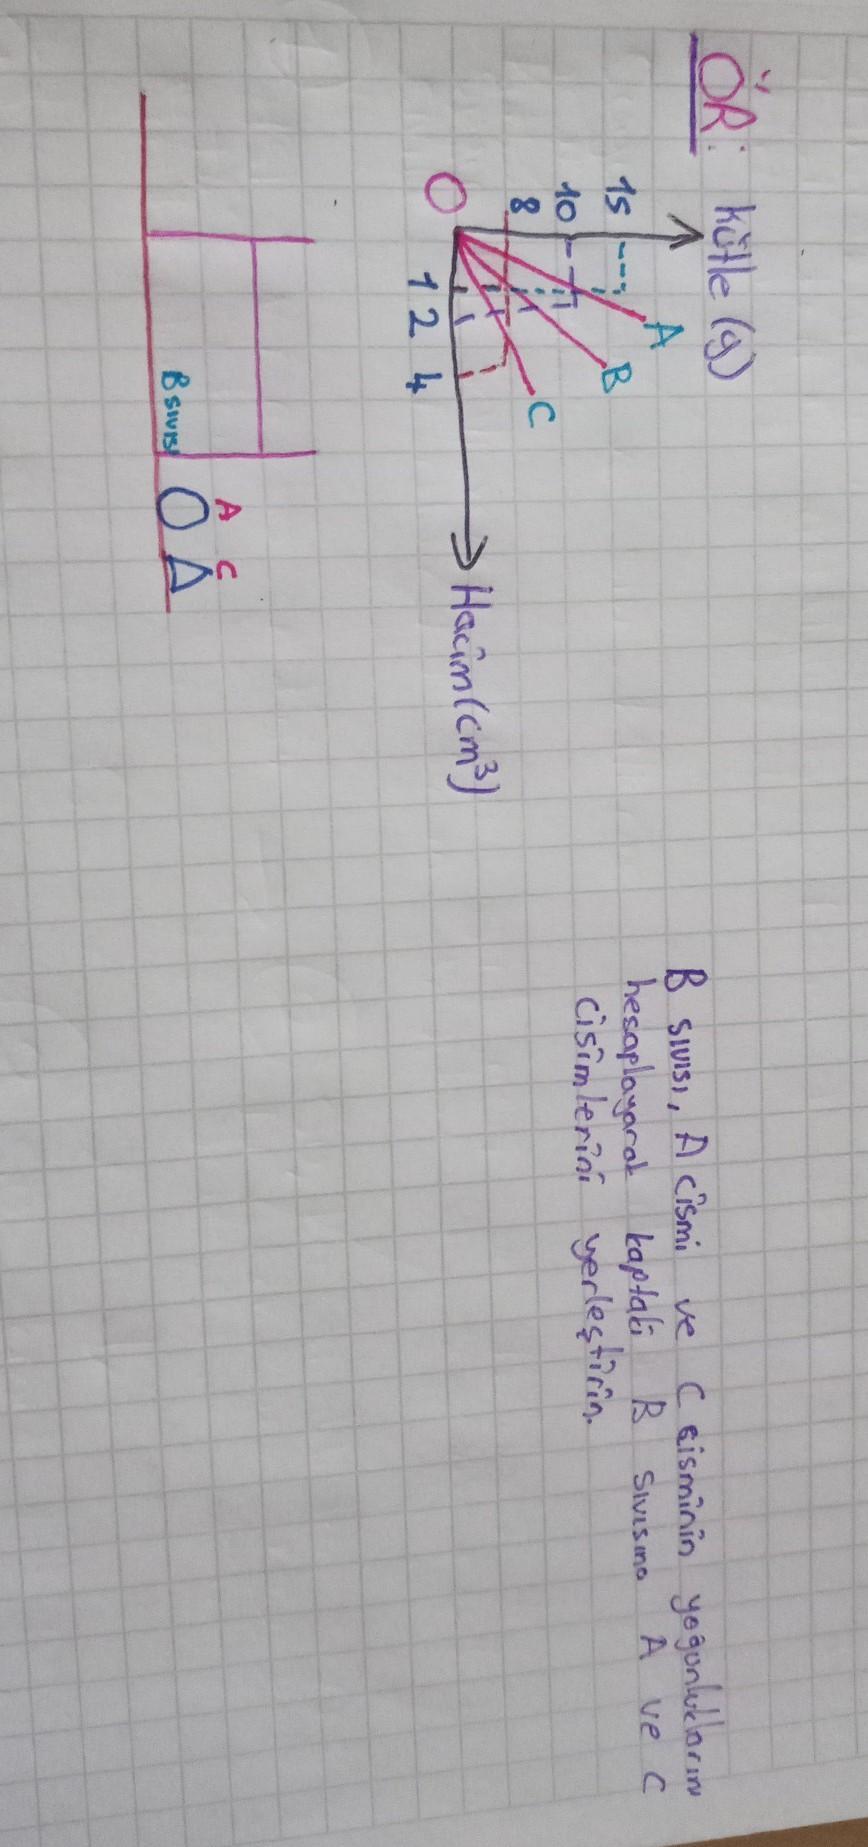 ÖR:
kütle (g)
15
10
8
O
1 2 4
A
B
C
Hacim (cm³)
B sıvısı, A cismi ve C cisminin yoğunluklarını
hesaplayarak kaptaki B sıvısına A ve C
cisimlerini yerleştirin.
B sıvısı
A C